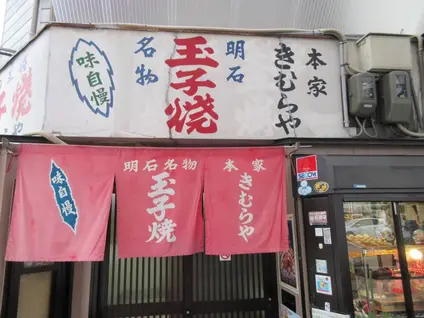 本家
きむらや
明石
玉子焼
名物
味自慢
玉子焼
本家
きむらや
明石名物
玉子焼
味自慢
SECOM